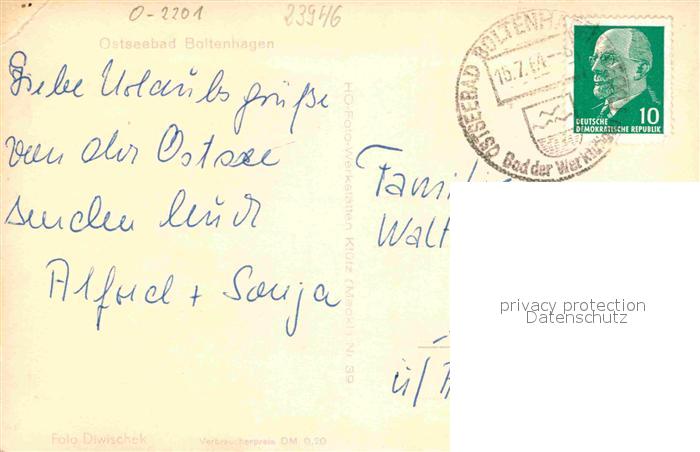 O-2201
23946
Ostseebad Boltenhagen
Liebe Urlaubsgrüße
von der Ostsee
senden Euch
Alfred + Sonja
Foto Diwischek
Verbraucherpreis DM 0,20
HO-Fotowerkstätten Klütz (Meckl.) Nr. 39
OSTSEEBAD BOLTENHAGEN
15.7.64
Bad der Werktätigen
10
DEUTSCHE
DEMOKRATISCHE REPUBLIK
Famili
Walt
ü/
privacy protection
Datenschutz